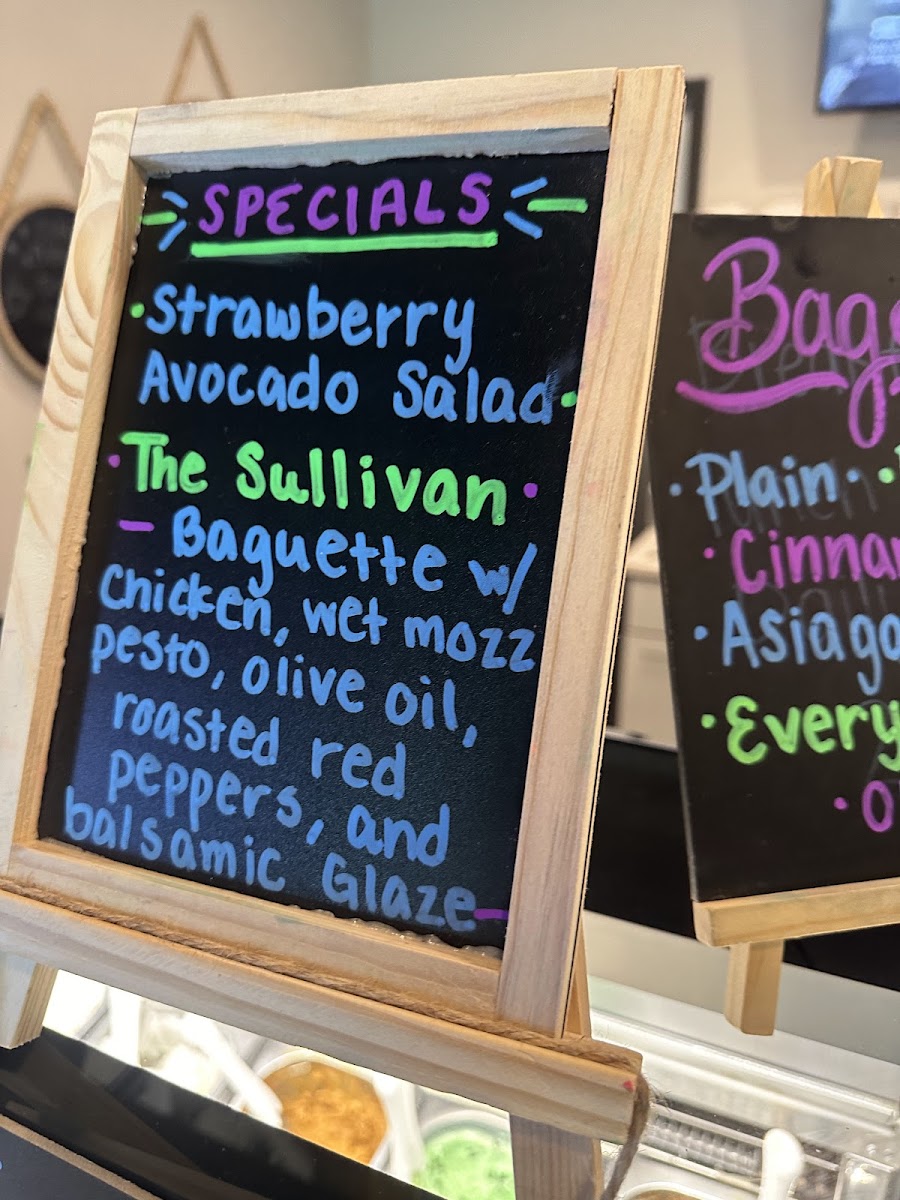 SPECIALS
•Strawberry
Avocado Salad•
•The Sullivan•
- Baguette w/
Chicken, wet mozz
pesto, olive oil,
roasted red
peppers, and
balsamic Glaze-
•Plain•
•Asiago